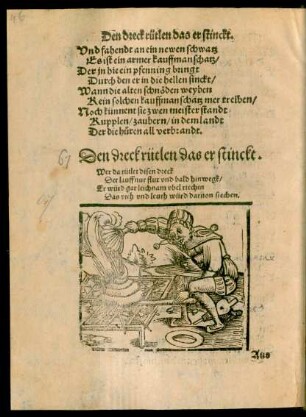 Den dreck rütlen das er stinckt.
Und fahendt an ein newen schwatz
Es ist ein armer kauffmanschatz/
Der jn hie ein pfenning bringt
Durch den er in die hellen sinckt/
Wann die alten schnöden weyben
Kein solchen kauffmanschatz mer treiben/
Noch künnent sie zwen meister standt
Kupplen/zaubern/in dem landt
Der die hüren all verbrandt.
67
Den dreck rütlen das er stinckt.
Wer da rütlet disen dreck
Der lauff nur flux und bald hinwegk/
Er würd gar leichnam übel riechen
Das rych und leüth würd dar von siechen.